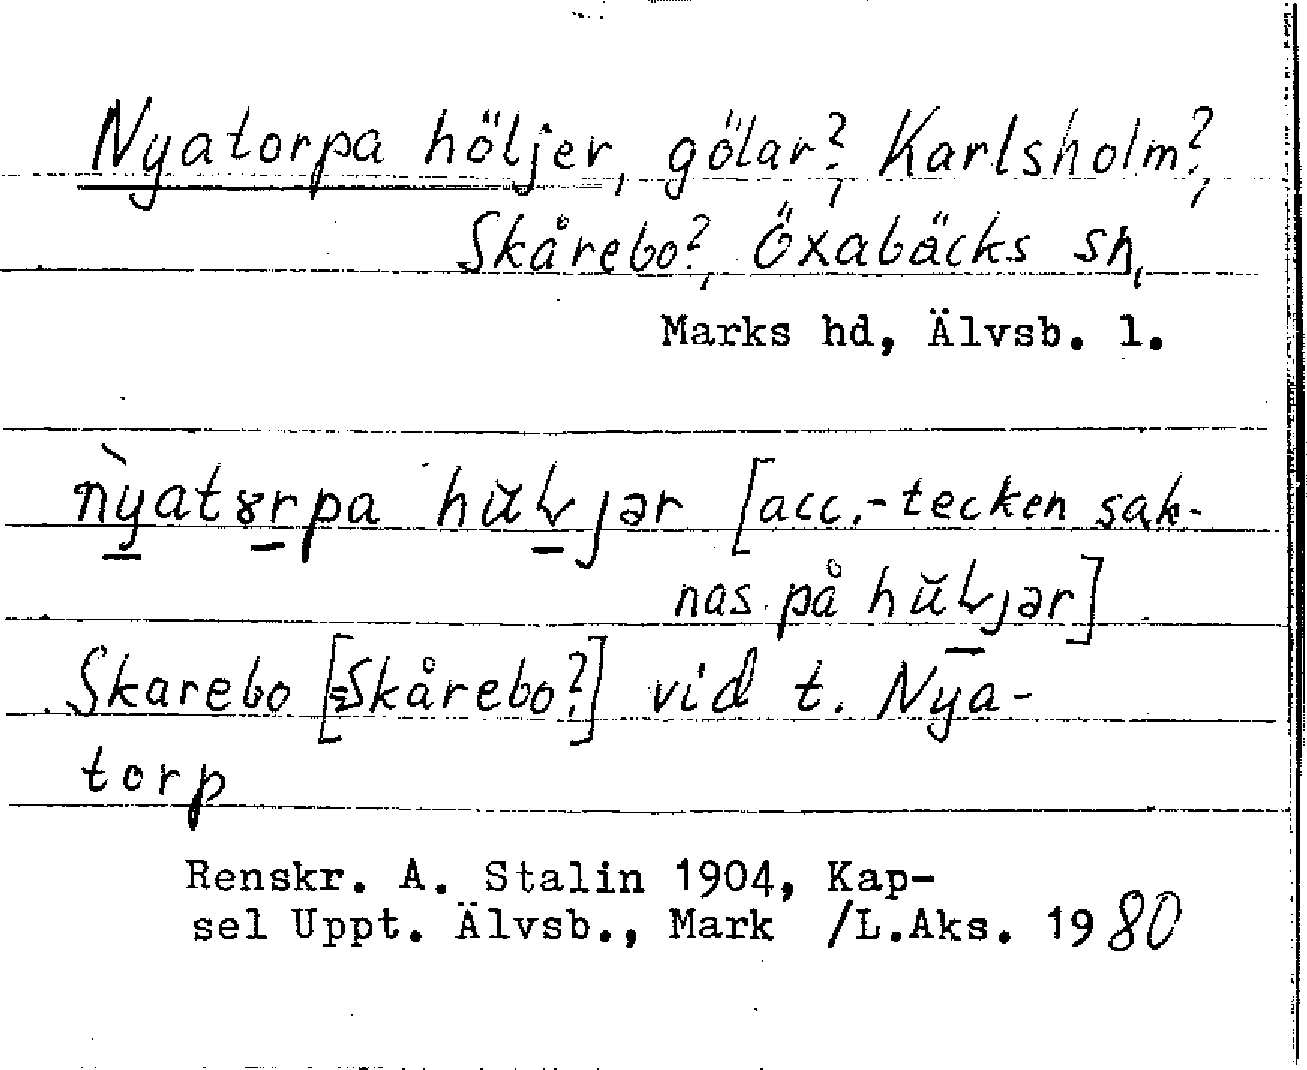 Nyatorpa höljer, gölar?, Karlsholm?,
Skårebo?, Öxabäcks sn,
Marks hd, Älvsb. l.
[acc.-tecken sak-
nas på
Skarebo [=Skårebo?] vid t. Nya-
torp
Renskr. A. Stalin 1904, Kap-
sel Uppt. Älvsb., Mark /L.Aks. 1980